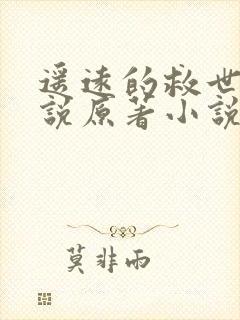 遥远的救世
說原著小說
莫非雨